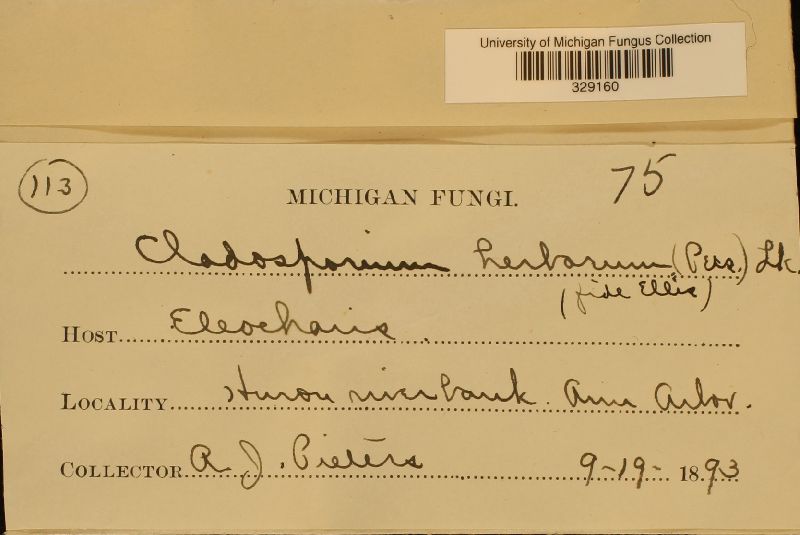 University of Michigan Fungus Collection
329160
113
75
MICHIGAN FUNGI.
Cladosporium herbarum (Pers.) Lk.
(fide Ellis)
HOST Eleocharis
LOCALITY Huron river bank. Ann Arbor.
COLLECTOR A. J. Pieters 9-19- 1893